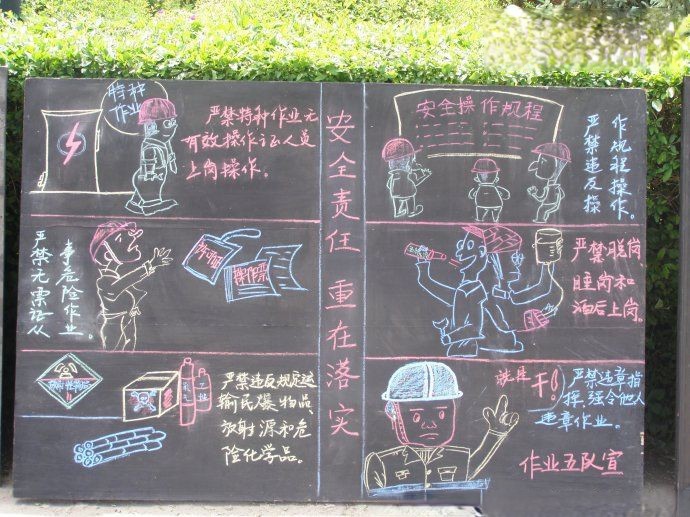 安全责任 重在落实
特种
作业
严禁特种作业无
有效操作证人员
上岗操作。
严禁无票证从
事危险作业。
严禁违反规定运
输民爆物品、
放射源和危
险化学品。
安全操作规程
严禁违反操
作规程操作。
严禁脱岗
睡岗和
酒后上岗。
就是
干!!
严禁违章指
挥、强令他人
违章作业。
作业五队宣